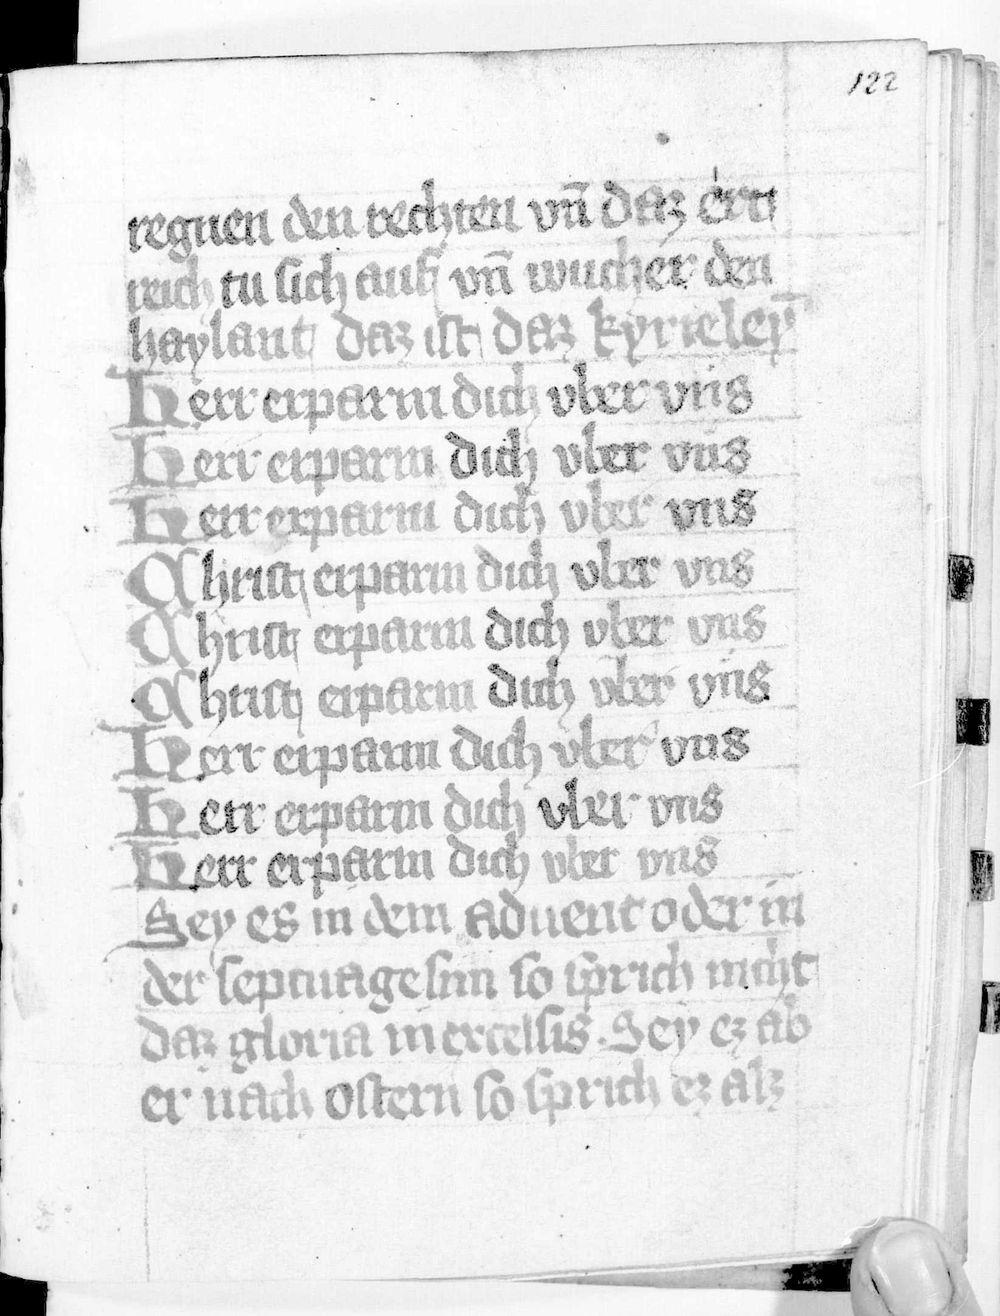 122
regnen den rechten vñ daz ert
reich tu sich auf vñ wucher den
haylant daz ist daz kyrieleȳ
Herr erparm dich vber vns
Herr erparm dich vber vns
Herr erparm dich vber vns
Christ erparm dich vber vns
Christ erparm dich vber vns
Christ erparm dich vber vns
Herr erparm dich vber vns
Herr erparm dich vber vns
Herr erparm dich vber vns
Sey es in dem aduent oder in
der septuagesim so sprich nicht
daz gloria in excelsis. Sey ez ab
er nach ostern so sprich ez alz